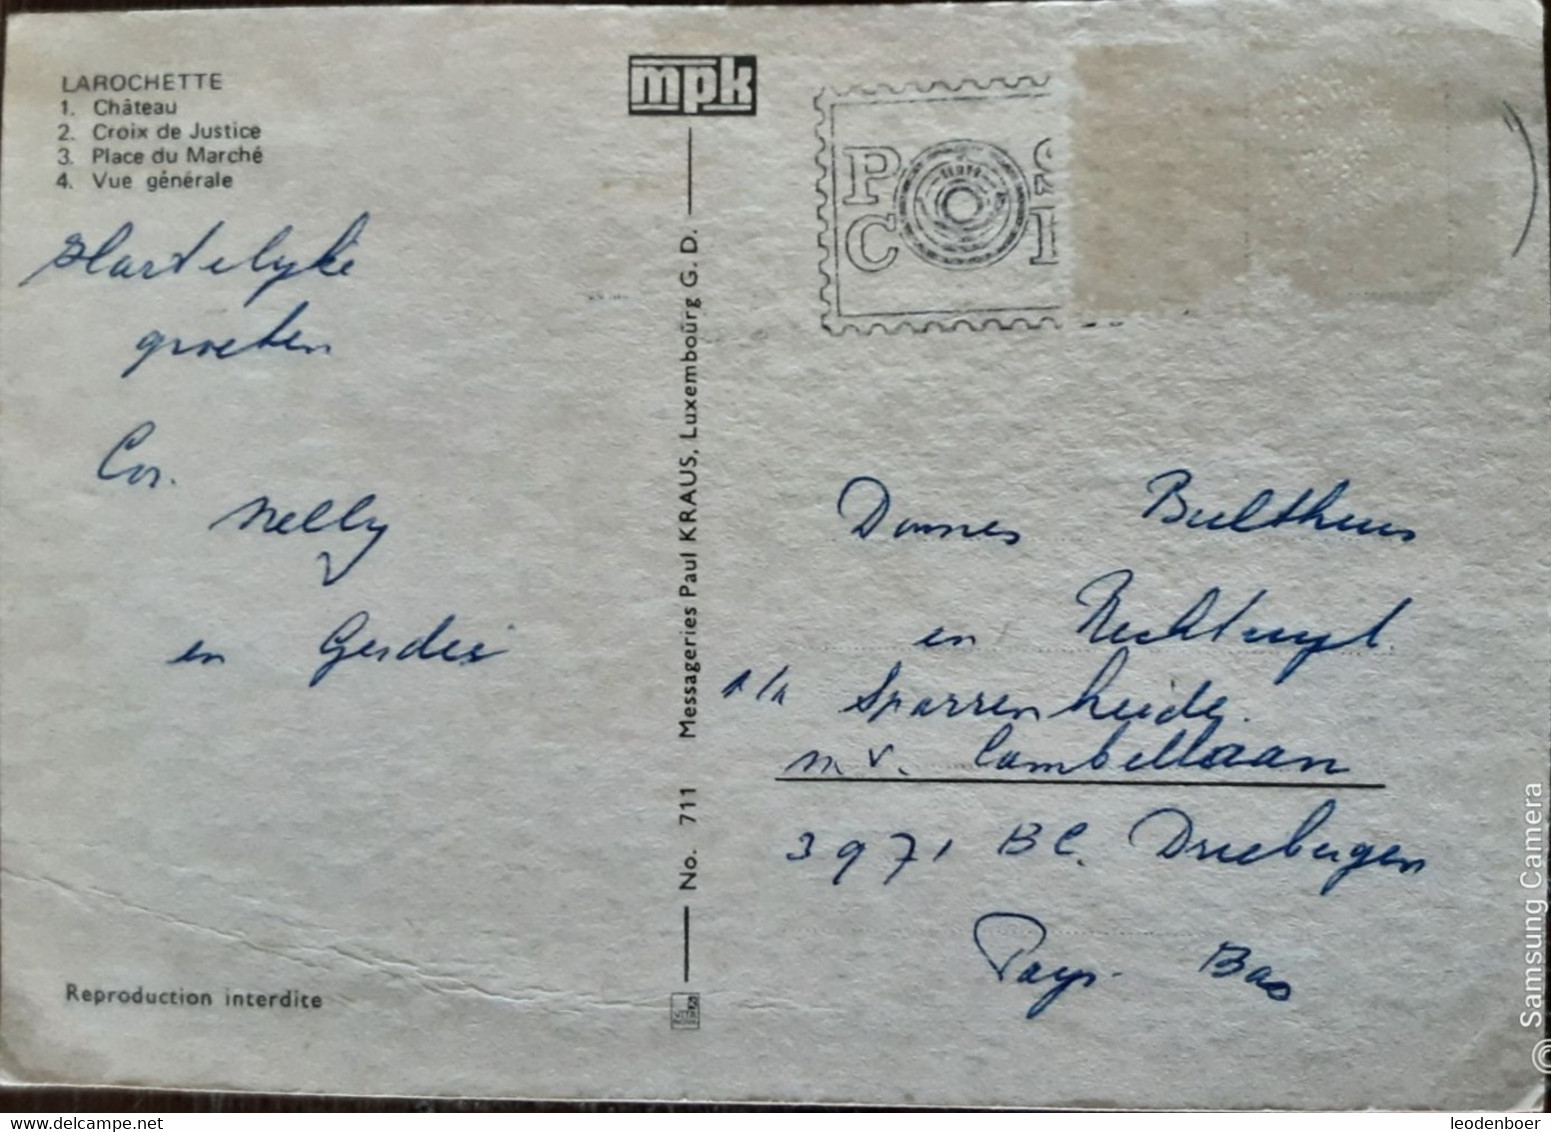 LAROCHETTE
1. Château
2. Croix de Justice
3. Place du Marché
4. Vue générale
mpk
Hartelyke
groeten
Cor.
Nelly
en Gerdie
Reproduction interdite
No. 711 Messageries Paul KRAUS, Luxembourg G. D.
P S
C
Dames Bulthuis
en
p/a Sparrenheide
m v. Cambellaan
3971 BC. Driebergen
Pays Bas
© Samsung Camera
delcampe.net
leodenboer